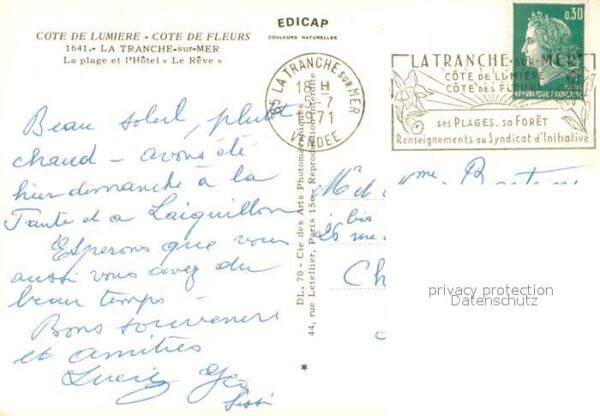 EDICAP
COULEURS NATURELLES
COTE DE LUMIERE - COTE DE FLEURS
1641.- LA TRANCHE-sur-MER
La plage et l'Hôtel « Le Rêve »
0,30
REPUBLIQUE FRANÇAISE
85 LA TRANCHE SUR MER
18 H
-7
1971
VENDEE
LA TRANCHE-SUR-MER
CÔTE DE LUMIERE
CÔTE DES FLEURS
ses PLAGES, sa FORÊT
Renseignements au Syndicat d'Initiative
Beau soleil, plutôt
chaud - avons été
hier dimanche à la
Faute et a L'aiguillon
Esperons que vous
aussi vous avez du
beau temps -
Bons souvenirs
et amitiés
Lucie
DL. 70 - Cie des Arts Photomécaniques
44, rue Letellier, Paris 15e - Reproduction interdite
*
Mr et Mme
bis
26 rue
privacy protection
Datenschutz